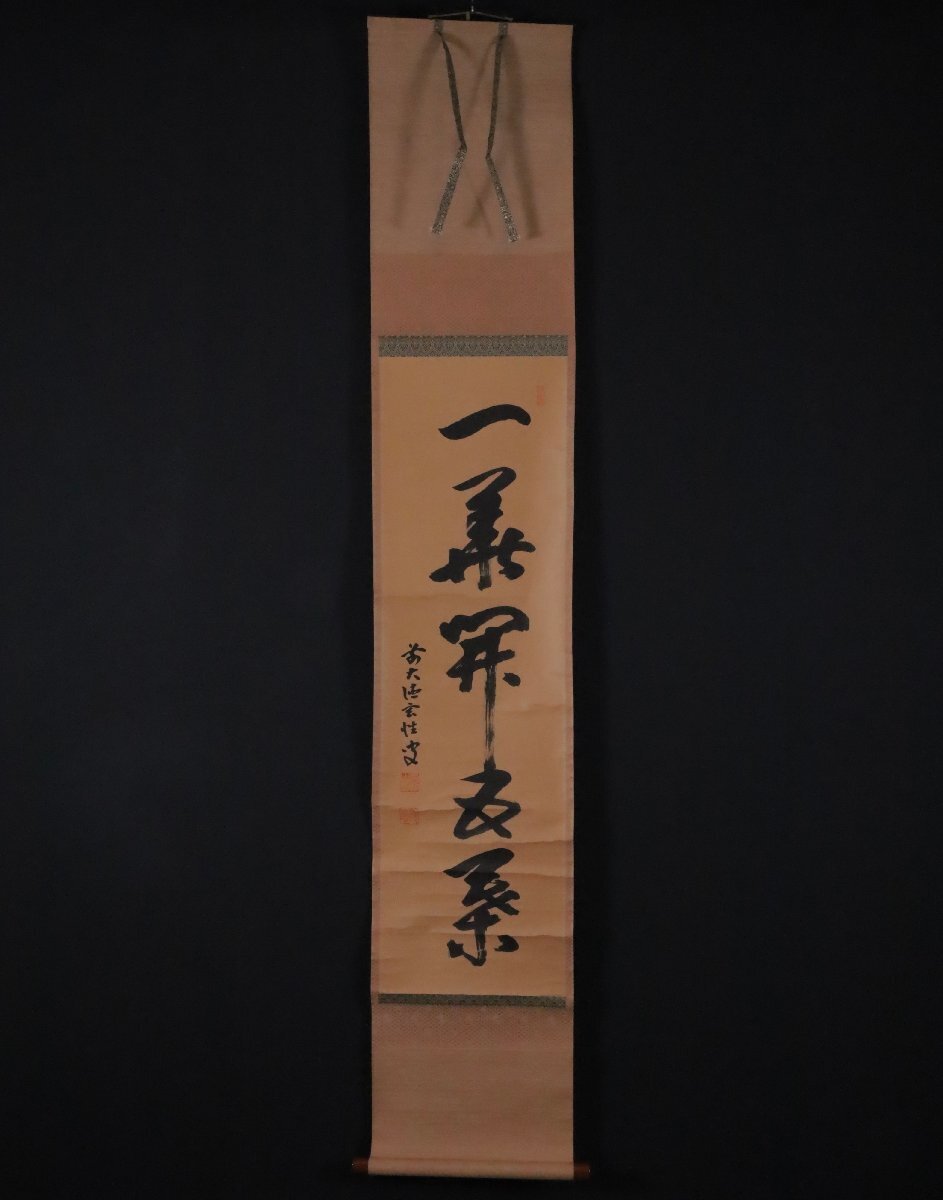 一華開五葉
前大徳玄性叟